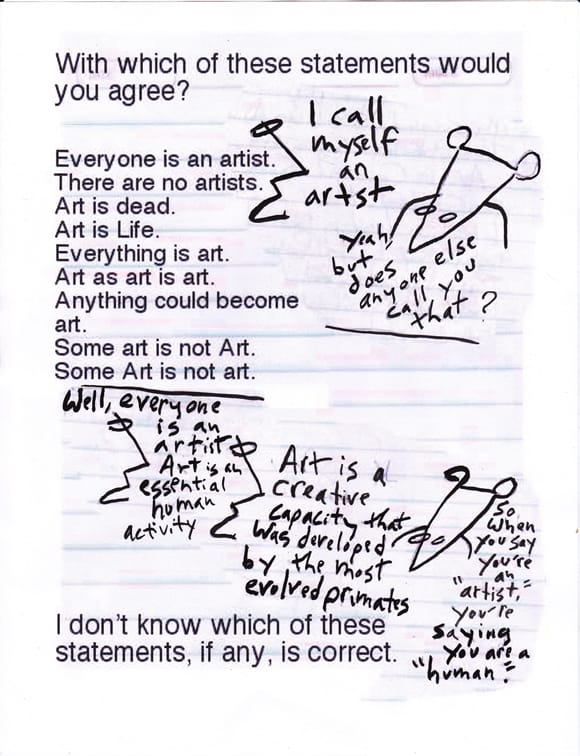 With which of these statements would
you agree?
I call
myself
an
artst
Everyone is an artist.
There are no artists.
Art is dead.
Art is Life.
Everything is art.
Art as art is art.
Anything could become
art.
Some art is not Art.
Some Art is not art.
Yeah!
but
does
anyone else
call you
that?
Well, everyone
is an
artist
Art is an
essential
human
activity
Art is a
creative
capacity that
was developed
by the most
evolved primates
So
when
you say
you're
an
"artist,"
you're
saying
you are a
"human."
I don't know which of these
statements, if any, is correct.